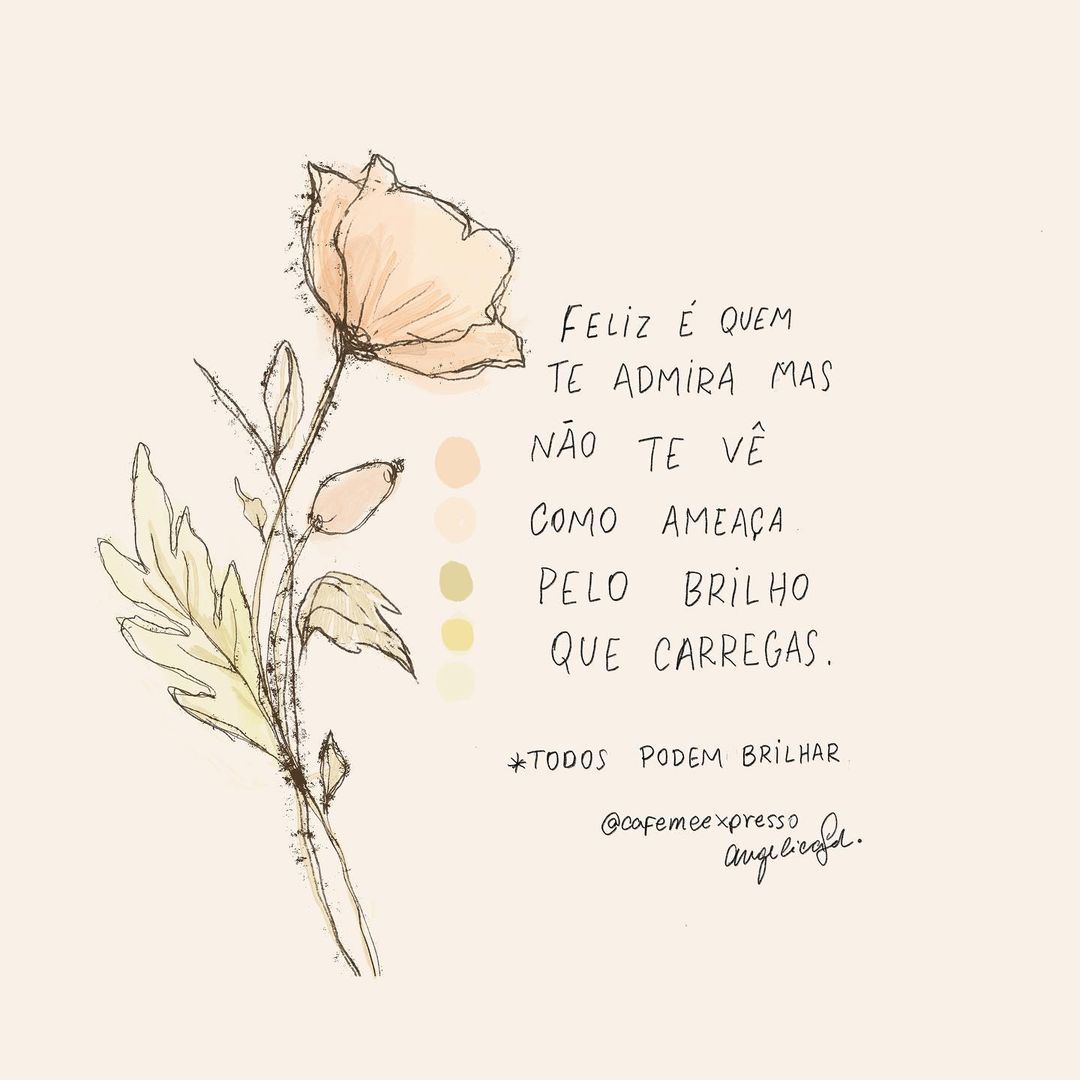 FELIZ É QUEM
TE ADMIRA MAS
NÃO TE VÊ
COMO AMEAÇA
PELO BRILHO
QUE CARREGAS.
*TODOS PODEM BRILHAR
@cafemeexpresso